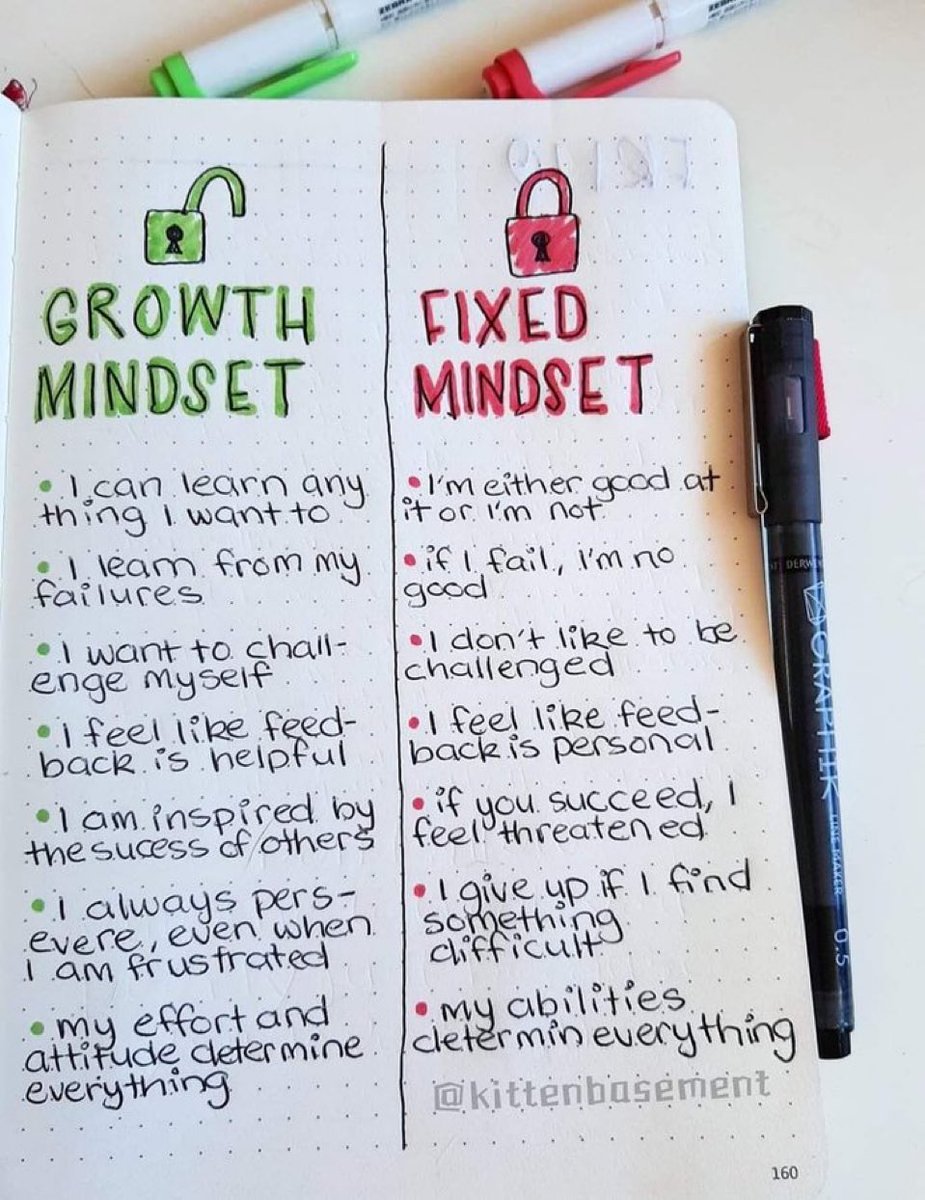 GROWTH
MINDSET
• I can learn any
thing I want to
• I learn from my
failures
• I want to chall-
enge myself
• I feel like feed-
back is helpful
• I am inspired by
the sucess of others
• I always pers-
evere, even when
I am frustrated
• my effort and
attitude determine
everything
FIXED
MINDSET
• I'm either good at
it or I'm not
• if I fail, I'm no
good
• I don't like to be
challenged
• I feel like feed-
back is personal
• if you succeed, I
feel threatened
• I give up if I find
something
difficult
• my abilities
determin everything
@kittenbasement
160
GRAPHIK LINE MAKER 0.5